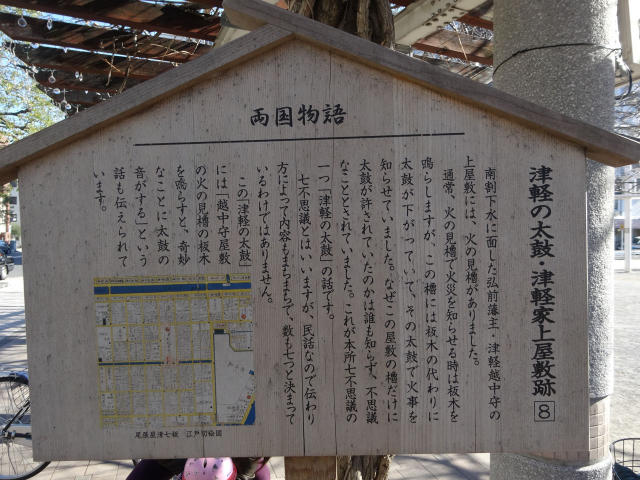 両国物語
津軽の太鼓・津軽家上屋敷跡 8
南割下水に面した弘前藩主・津軽越中守の
上屋敷には、火の見櫓がありました。
通常、火の見櫓で火災を知らせる時は板木を
鳴らしますが、この櫓には板木の代わりに
太鼓が下がっていて、その太鼓で火事を
知らせていました。なぜこの屋敷の櫓だけに
太鼓が許されていたのかは誰も知らず、不思議
なこととされていました。これが本所七不思議の
一つ「津軽の太鼓」の話です。
七不思議とはいいますが、民話なので伝わり
方によって内容もまちまちで、数も七つと決まって
いるわけではありません。
この「津軽の太鼓」
には「越中守屋敷
の火の見櫓の板木
を鳴らすと、奇妙
なことに太鼓の
音がする」という
話も伝えられて
います。
尾張屋清七板 江戸切絵図